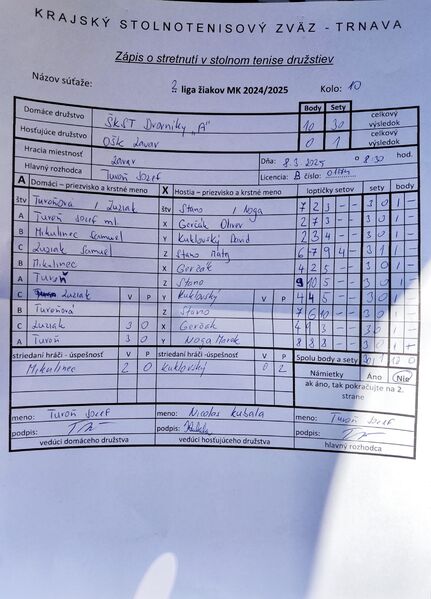 KRAJSKÝ STOLNOTENISOVÝ ZVÄZ - TRNAVA
Zápis o stretnutí v stolnom tenise družstiev
Názov súťaže: 2 liga žiakov MK 2024/2025 Kolo: 10
Body Sety
Domáce družstvo ŠKST Drovníky „A" 10 30 celkový výsledok
Hosťujúce družstvo OŠK Zavar 0 1 celkový výsledok
Hracia miestnosť Zavar Dňa: 8.3.2025 o 8:30 hod.
Hlavný rozhodca Turoň Jozef Licencia: B číslo:
A Domáci – priezvisko a krstné meno X Hostia – priezvisko a krstné meno loptičky setov sety body
štv Turoňová / Zuziak štv Stano / Noga 7 2 3 - - 3 0 1 -
A Turoň Jozef ml. X Gerčák Oliver 2 7 3 - - 3 0 1 -
B Mikulinec Samuel Y Kuklovský David 2 3 4 - - 3 0 1 -
C Zuziak Samuel Z Stano 6 7 9 4 - 3 1 1 -
B Mikulinec X Gerčák 4 2 5 - - 3 0 1 -
A Turoň Z Stano 9 10 5 - - 3 0 1 -
C Zuziak V P Y Kuklovský V P 4 4 5 - - 3 0 1 -
B Turoňová Z Stano 7 6 10 - - 3 0 1 -
C Zuziak 3 0 X Gerčák 4 3 - - 3 0 1 -
A Turoň 3 0 Y Noga Marek 8 8 8 - - 3 0 1
striedaní hráči - úspešnosť V P striedaní hráči - úspešnosť V P Spolu body a sety 30 1 10 0
Mikulinec 2 0 Kuklovský 0 2 Námietky Áno Nie
ak áno, tak pokračujte na 2. strane
meno: Turoň Jozef meno: Nicolas Kubala meno: Turoň Jozef
podpis: podpis: Kubala podpis:
vedúci domáceho družstva vedúci hosťujúceho družstva hlavný rozhodca